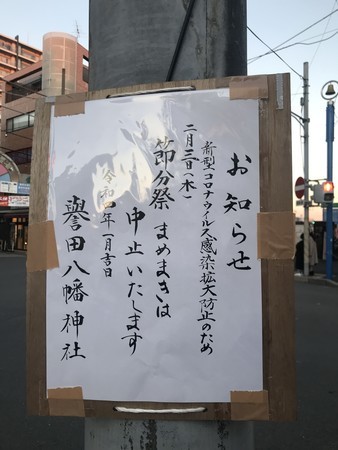 お知らせ
新型コロナウイルス感染拡大防止のため
二月三日(木)
節分祭 まめまきは
中止いたします
令和四年一月吉日
譽田八幡神社